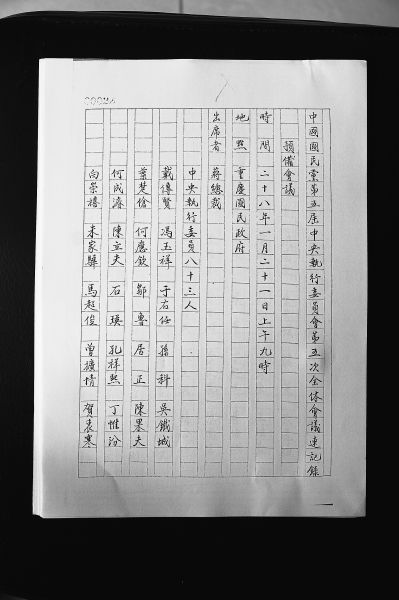 中國國民黨第五屆中央執行委員會第五次全体會議速記錄
預備會議
時間 二十八年一月二十一日上午九時
地點 重慶國民政府
出席者 蔣總裁
中央執行委員八十三人
戴傳賢 馮玉祥 于右任 孫科 吳鐵城
葉楚傖 何應欽 鄒魯 居正 陳果夫
何成濬 陳立夫 石瑛 孔祥熙 丁惟汾
向崇禧 朱家驊 馬超俊 曾擴情 賀衷寒